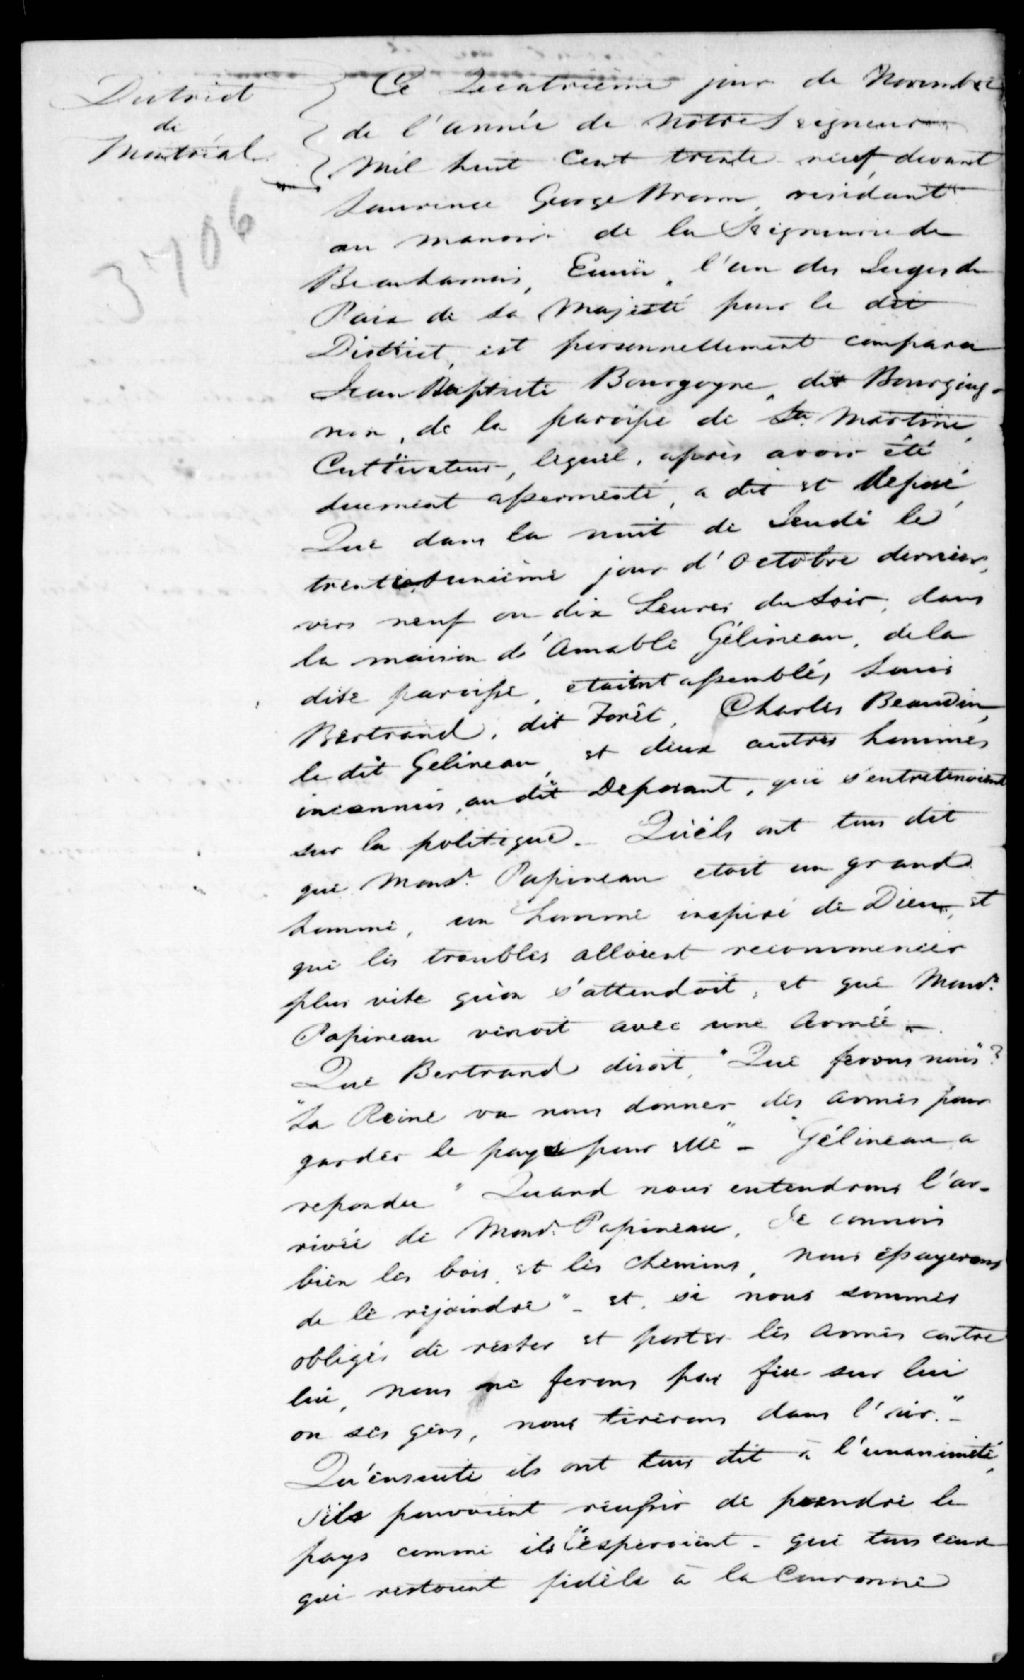 District
de
Montréal
3706
Ce Quatrième jour de Novembre
de l'année de Notre Seigneur
Mil huit cent trente neuf devant
Laurence George Brown, résidant
au manoir de la Seigneurie de
Beauharnois, Ecuïer, l'un des Juges de
Paix de Sa Majesté pour le dit
District, est personnellement comparu
Jean Baptiste Bourgogne, dit Bourging-
non, de la paroisse de Ste. Martine,
Cultivateur, lequel, après avoir été
duement assermenté, a dit et deposé,
Que dans la nuit de Jeudi le
trente unième jour d'Octobre dernier,
vers neuf ou dix heures du soir, dans
la maison d'Amable Gélineau, de la
dite paroisse, etaient assemblés Louis
Bertrand, dit Forêt, Charles Beaudin,
le dit Gelineau, et deux autres hommes
inconnus, au dit Deposant, qui s'entretenoient
sur la politique. - Qu'ils ont tous dit
que Monsr. Papineau etoit un grand
homme, un homme inspiré de Dieu, et
que les troubles alloient recommencer
plus vite qu'on s'attendoit, et que Monsr.
Papineau venoit avec une Armée. -
Que Bertrand disoit, "Que ferons nous"?
"La Reine va nous donner des armes pour
garder le pays pour elle" - Gélineau a
repondu "Quand nous entendrons l'ar-
rivée de Monsr. Papineau, Je connois
bien les bois et les chemins, nous essayerons
de le rejoindre" - et, si nous sommes
obligés de rester et porter les armes contre
lui, nous ne ferons pas feu sur lui
ou ses gens, nous tirerons dans l'air." -
Qu'ensuite ils ont tous dit à l'unanimité,
s'ils pouvoient reussir de prendre le
pays comme ils l'esperoient - que tous ceux
qui restoient fidèle à la Couronne